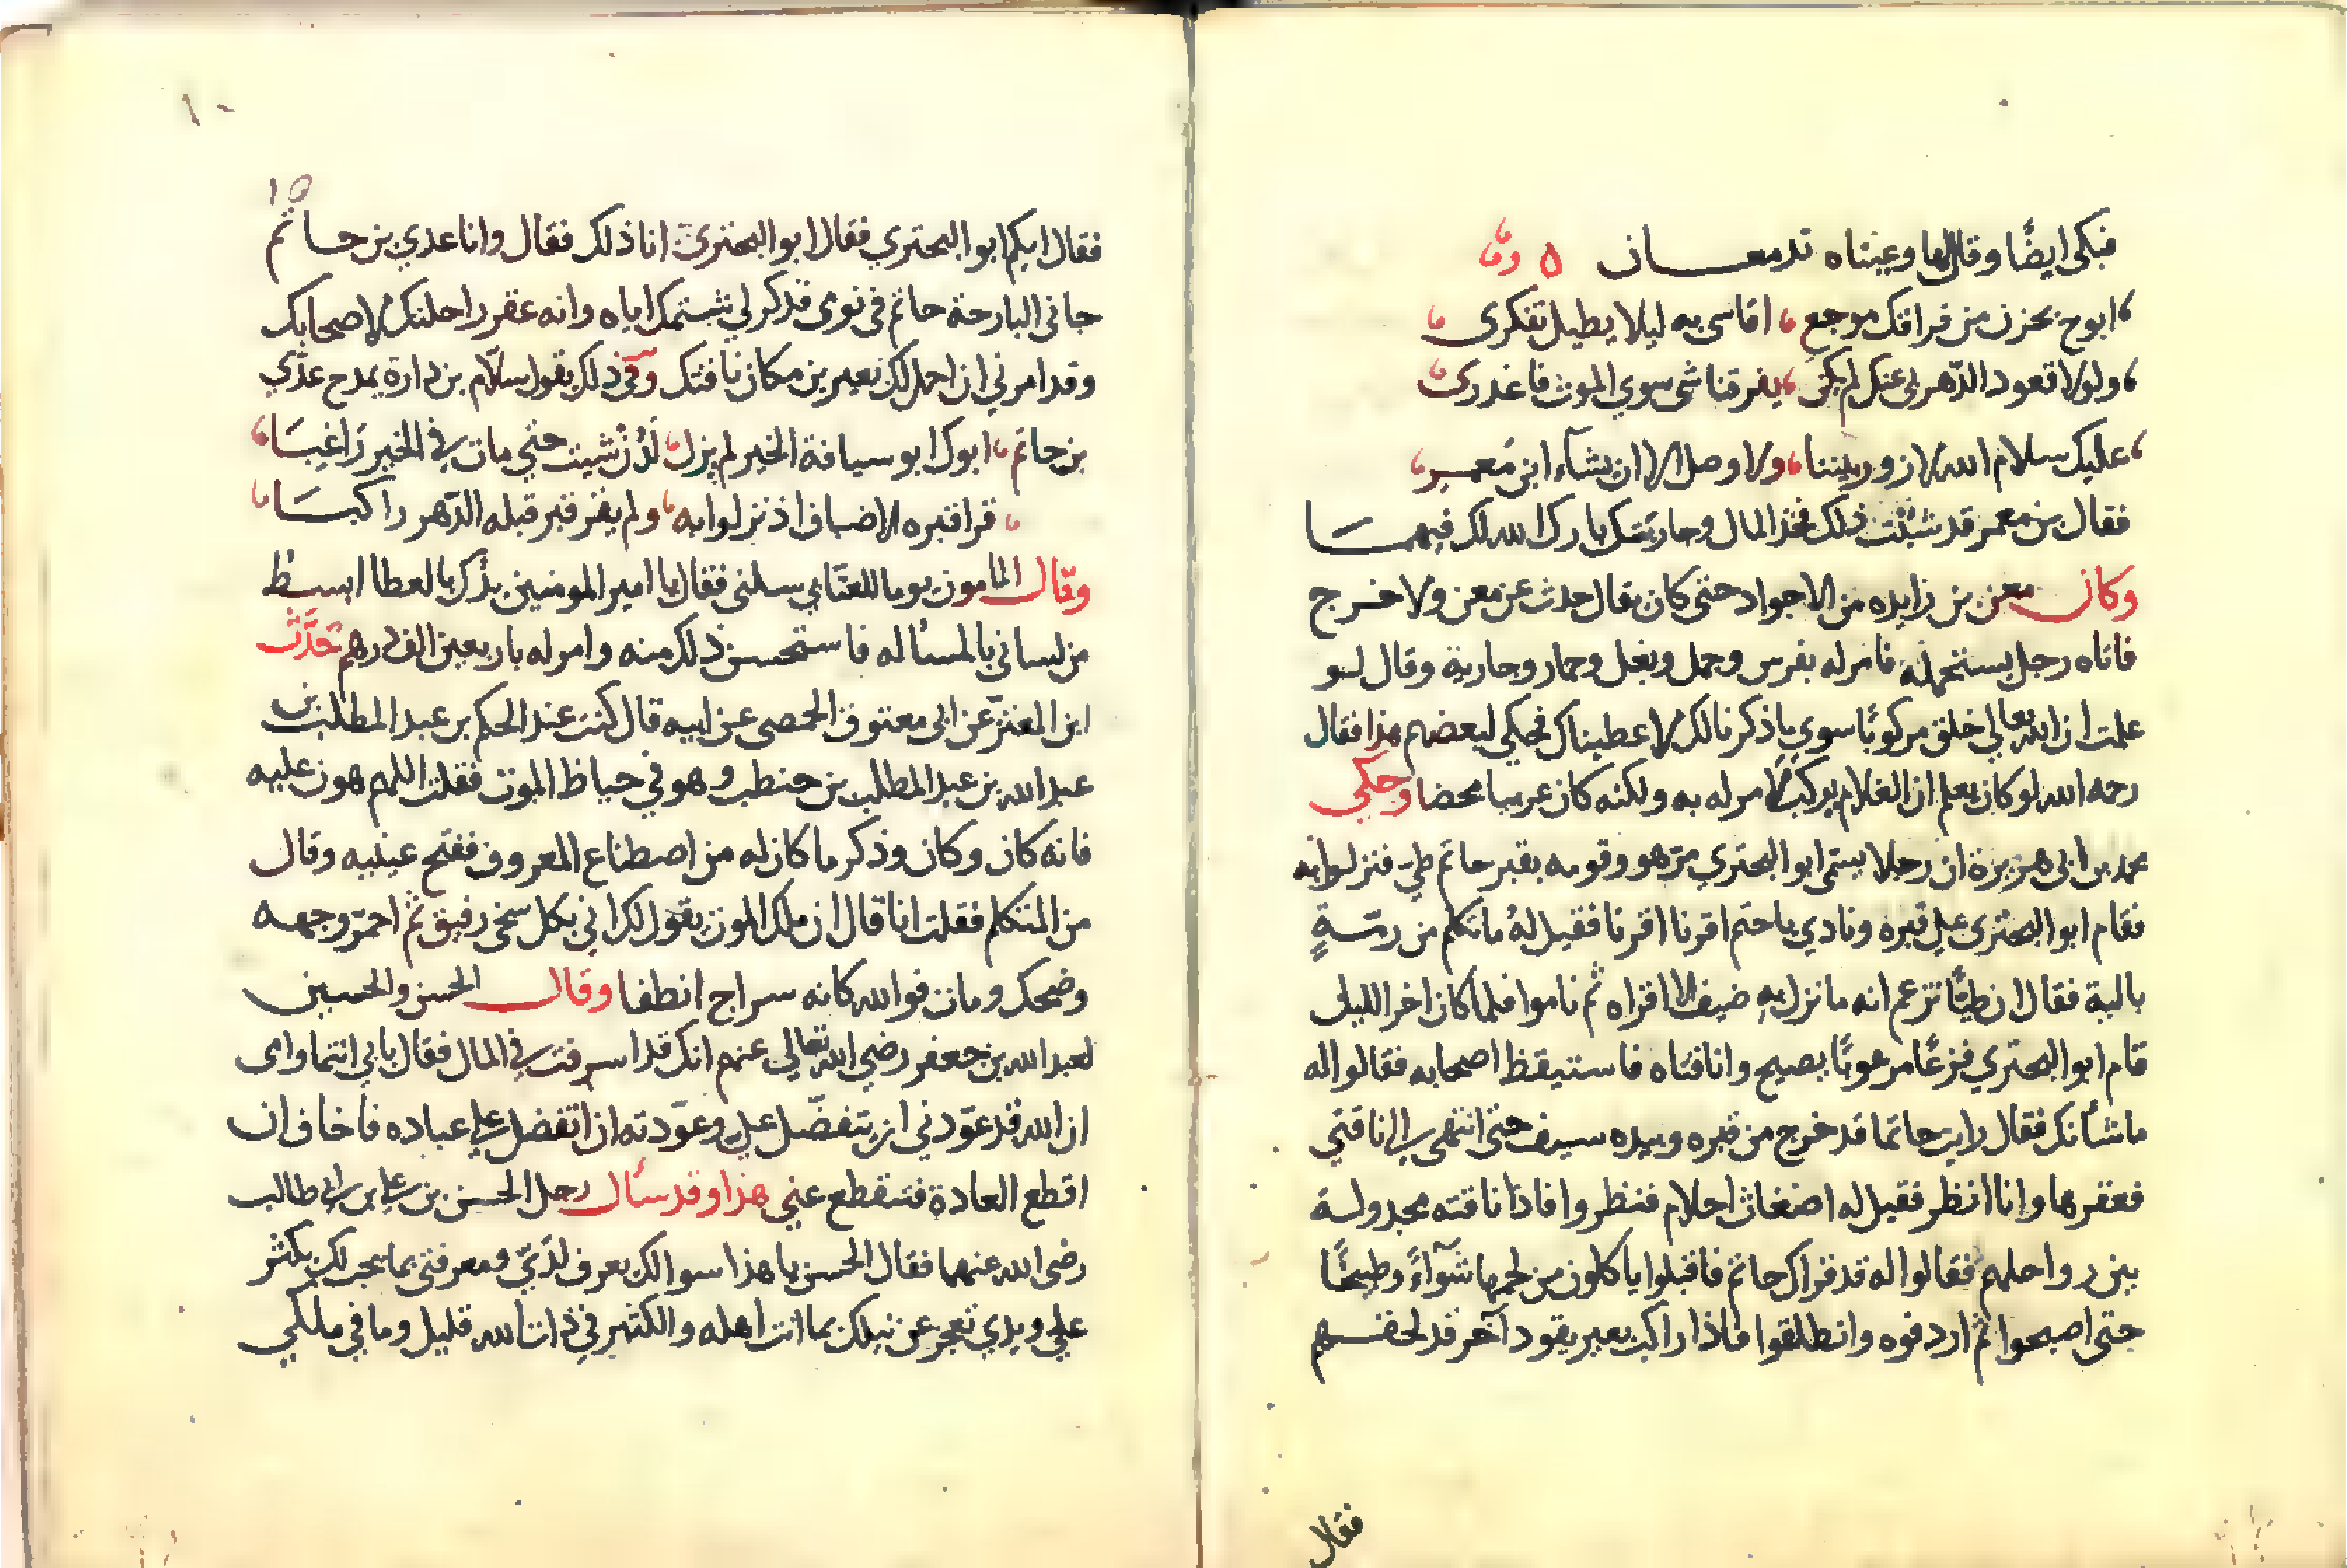 فبكى ايضًا وقال لها وعيناه تدمعان
ابوح بحزن من فراقك موجع اقاسى به ليلا يطيل تفكرى
ولولا قعود الدهر بى عنك لم يكن يفرقنا شى سوي الموت فاعذرى
عليك سلام الله لا زور بيننا ولا وصل الا ان يشآء ابن معمر
فقال بن معمر قد شئت ذلك فخذ المال وجاريتك بارك الله لك فيهما
وكان معن بن زايده من الاجواد حتى كان يقال حدث عن معن ولا حرج
فاتاه رجل يستحمله فامر له بفرس وجمل وبغل وحمار وجارية وقال لو
علمت ان الله تعالي خلق مركوبًا سوي ما ذكرنا لك لاعطيناك فحكي لبعضهم هذا فقال
رحمه الله لو كان يعلم ان الغلام يركب لامر له به ولكنه كان عربيا محضا وحكي
محمد بن ابى هريرة ان رجلا يسمى ابو البحتري مر هو وقومه بقبر حاتم طي فنزلوا به
فقام ابو البحترى على قبره ونادي يا حتم اقرنا اقرنا فقيل له ما تكلم من رمة
بالية فقال ان طيًا تزعم انه ما نزل به ضيف الا اقراه ثم ناموا فلما كان اخر الليل
قام ابو البحتري فزعًا مرعوبًا يصيح واناقتاه فاستيقظ اصحابه فقالوا له
ما شانك فقال رايت حاتما قد خرج من قبره وبيده سيف حتى انتهى الى ناقتي
فعقرها وانا انظر فقيل له اضغاث احلام فنظروا فاذا ناقته مجدولة
بين رواحلهم فقالوا له قد قراك حاتم فاقبلوا ياكلون من لحمها شوآءً وطبيخًا
حتى اصبحوا ثم اردفوه وانطلقوا فاذا راكب بعير يقود آخر قد لحقهم
فقال
١٠
١٥
فقال ايكم ابو البحتري فقال ابو البحتري انا ذلك فقال وانا عدي بن حاتم
جانى البارحة حاتم فى نومى فذكر لي شتمك اياه وانه عقر راحلتك لاصحابك
وقد امرني ان احمل لك بعيرين مكان ناقتك وفي ذلك يقول سلام بن دارة يمدح عدي
بن حاتم ابوك ابو سيافة الخير لم يزل لدن شبت حتي مات في الخير راغبا
قرا قبره الاضياف اذ نزلوا به ولم يقر قبر قبله الدهر راكبا
وقال المامون يوما للعتابي سلنى فقال يا امير المومنين يدك بالعطا ابسط
من لساني بالمساله فاستحسن ذلك منه وامر له باربعين الف درهم تحدث
ابن المعتز عن ابى معتوق الحمصى عن ابيه قال كنت عند الحكم بن عبد المطلب بن
عبد الله بن عبد المطلب بن حنطب وهو في حياظ الموت فقلت اللهم هون عليه
فانه كان وكان وذكر ما كان له من اصطناع المعروف ففتح عينيه وقال
من المتكلم فقلت انا قال ان ملك الموت يقول لك اني بكل سخى رفيق ثم احمر وجهه
وضحك ومات فوالله كانه سراج انطفا وقال الحسن والحسين
لعبد الله بن جعفر رضي الله تعالي عنهم انك قد اسرفت في المال فقال بابي انتما وامى
ان الله قد عودني ان يتفضل علي وعودته ان اتفضل على عباده فاخاف ان
اقطع العادة فتنقطع عني هذا وقد سأل رجل الحسن بن على بن ابى طالب
رضى الله عنهما فقال الحسن يا هذا سوالك يعرف لدي ومعرفتى بما يجب لك يكثر
علي ويدي تعجز عن نيلك بما انت اهله والكثير في ذات الله قليل وما في ملكي